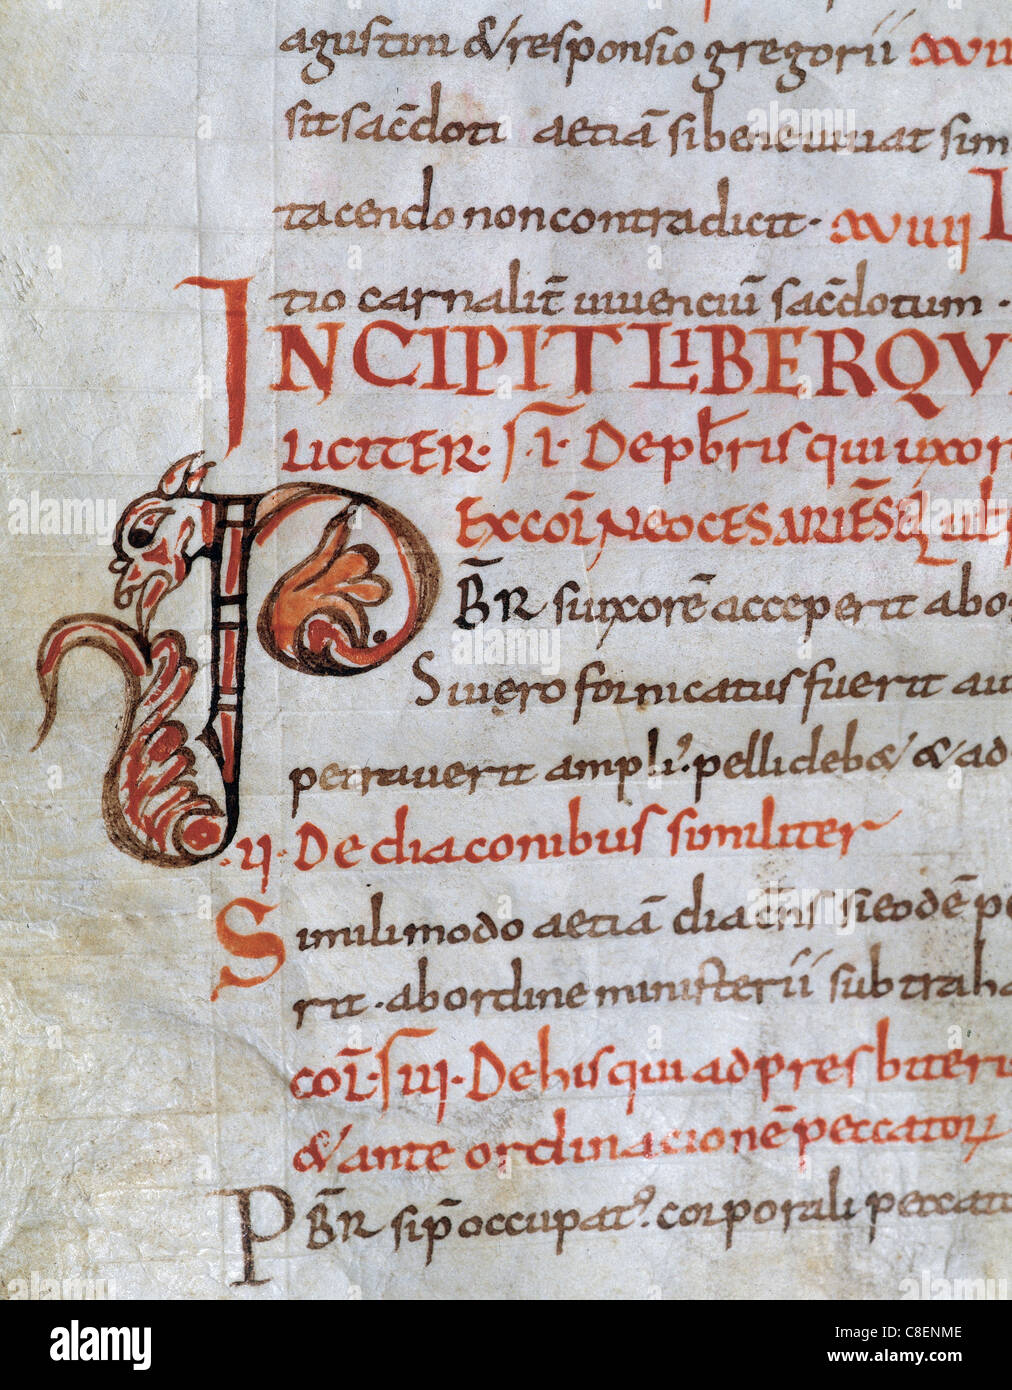 agustini & responsio gregorii xvii
sit sac̄doti aetiā si bene vivat sim
tacendo non contradicit · xviiij
tio carnalit̄ viventiū sac̄dotum ·
INCIPIT LIBER QVI
LICITER · S · I · De pb̄ris qui uxor
EX CON̄ NEOCESARIENSE
PBR̄ si uxorē acceperit abo
Si vero fornicatus fuerit au
petraverit ampli' pelli deb& & ad
· ij · De diaconibus similiter
Simili modo aetiā diac̄ns si eodē pe
rit · ab ordine ministerii subtraha
con̄ · s · iii · De his qui ad presbiteri
& ante ordinacionē peccator
PBR̄ si p̄occupat' corporali peccat
alamy
C8ENME
www.alamy.com